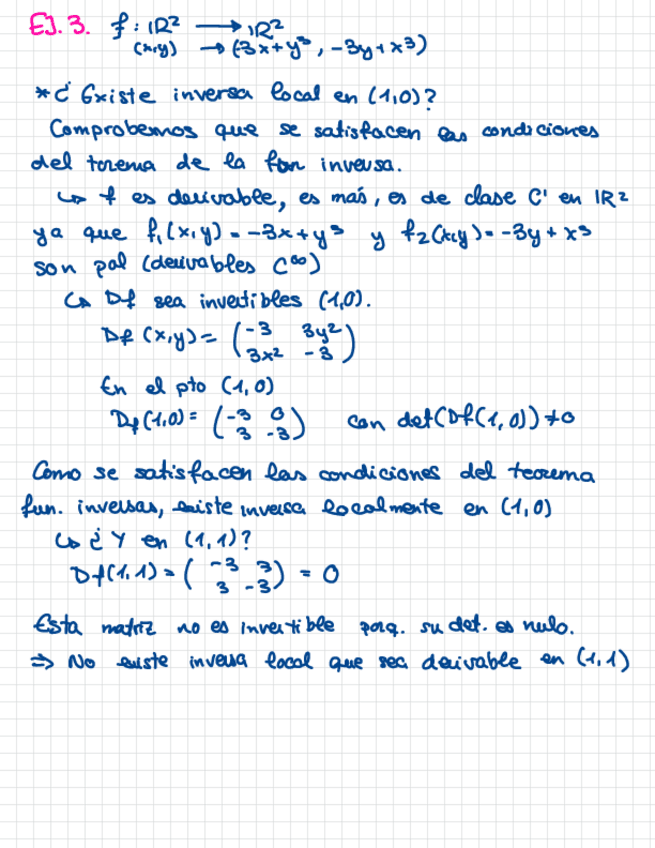 EJ. 3. f : IR² ⟶ IR²
(x,y) → (-3x + y³, -3y + x³)
* ¿ Existe inversa local en (1,0)?
Comprobemos que se satisfacen las condiciones
del torema de la fon inversa.
↳ f es derivable, es más, es de clase C¹ en IR²
ya que f₁(x,y) = -3x + y³ y f₂(x,y) = -3y + x³
son pol (derivables C^∞)
↳ Df sea invertibles (1,0).
Df (x,y) = ( -3 3y² ; 3x² -3 )
En el pto (1,0)
Df (1,0) = ( -3 0 ; 3 -3 ) con det(Df(1,0)) ≠ 0
Como se satisfacen las condiciones del teorema
fun. inversas, existe inversa localmente en (1,0)
↳ ¿ Y en (1,1)?
Df(1,1) = ( -3 3 ; 3 -3 ) = 0
Esta matriz no es invertible porq. su det. es nulo.
⇒ No existe inversa local que sea derivable en (1,1)